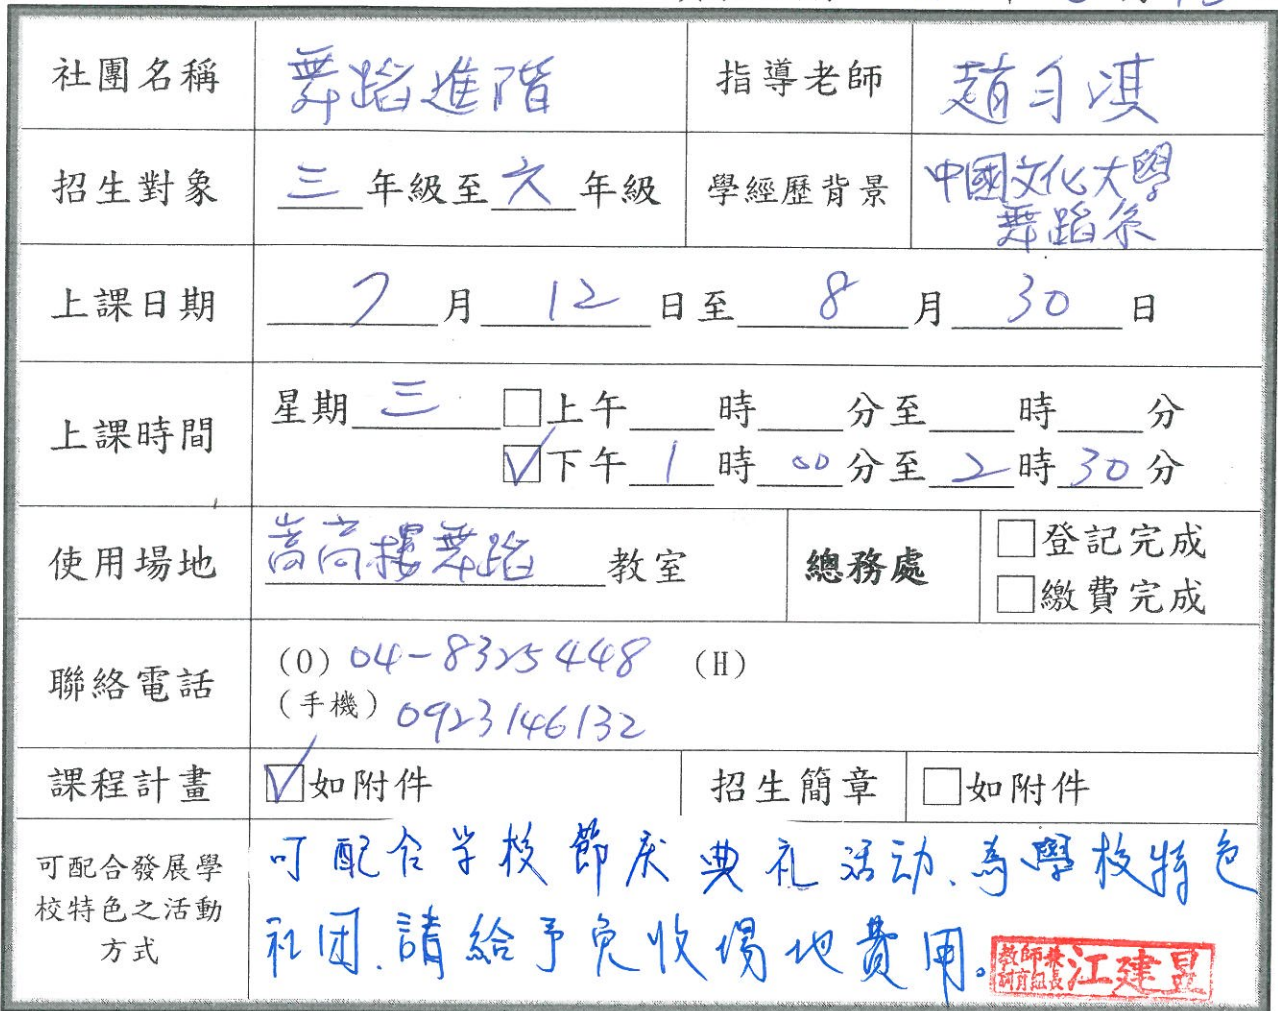 社團名稱 舞蹈進階 指導老師 趙勻淇
招生對象 三年級至六年級 學經歷背景 中國文化大學
舞蹈系
上課日期 7月12日至8月30日
上課時間 星期三 □上午____時____分至____時____分
☑下午1時00分至2時30分
使用場地 嵩高樓舞蹈教室 總務處 □登記完成
□繳費完成
聯絡電話 (O) 04-8325448 (H)
(手機) 0923146132
課程計畫 ☑如附件 招生簡章 □如附件
可配合發展學
校特色之活動
方式
可配合学校節庆典礼活动、為學校特色
社团、請給予免收場地費用。
教師兼
訓育組長 江建昱